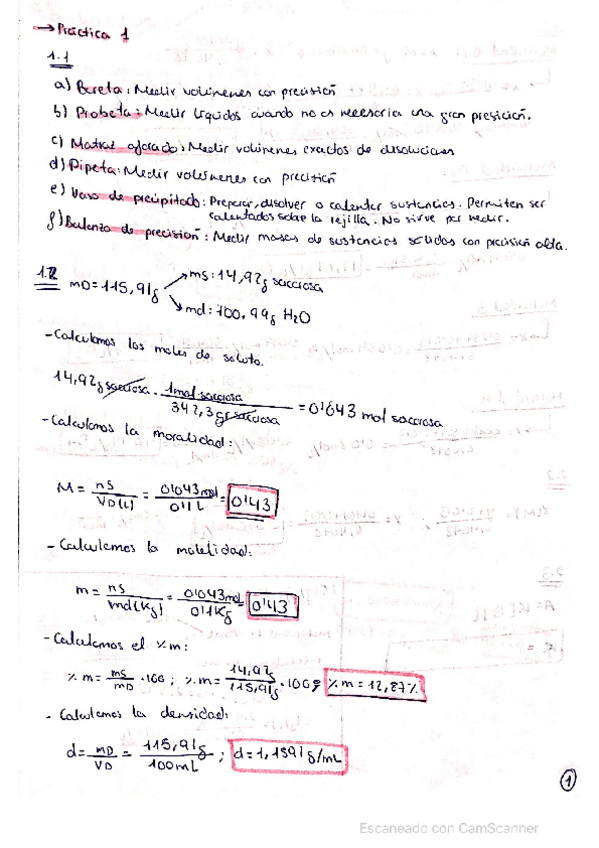 →Práctica 1
1.1
a) Bureta: Medir volúmenes con precisión
b) Probeta: Medir líquidos cuando no es necesaria una gran presición.
c) Matraz aforado: Medir volúmenes exactos de disoluciones
d) Pipeta: Medir volúmenes con precisión
e) Vaso de precipitado: Preparar, disolver o calentar sustancias. Permiten ser
calentados sobre la rejilla. No sirve par medir.
f) Balanza de precisión: Medir masas de sustancias sólidas con precisión alta.
1.2
mD=115,91g → ms: 14,92g sacarosa
→ md: 100,99g H₂O
-Calculamos los moles de soluto.
14,92g sacarosa · 1mol sacarosa / 342,3gr sacarosa = 0'043 mol sacarosa
-Calculamos la moralidad:
M = ns / VD(L) = 0'043mol / 0'1L = 0'43
- Calculamos la molalidad:
m = ns / md(Kg) = 0'043mol / 0'1Kg = 0'43
- Calculamos el %m:
%m = ms / mD · 100 ; %m = 14,92g / 115,91g · 100g %m = 12,87%
- Calculamos la densidad:
d = mD / VD = 115,91g / 100mL ; d = 1,1591g/mL
1
Escaneado con CamScanner